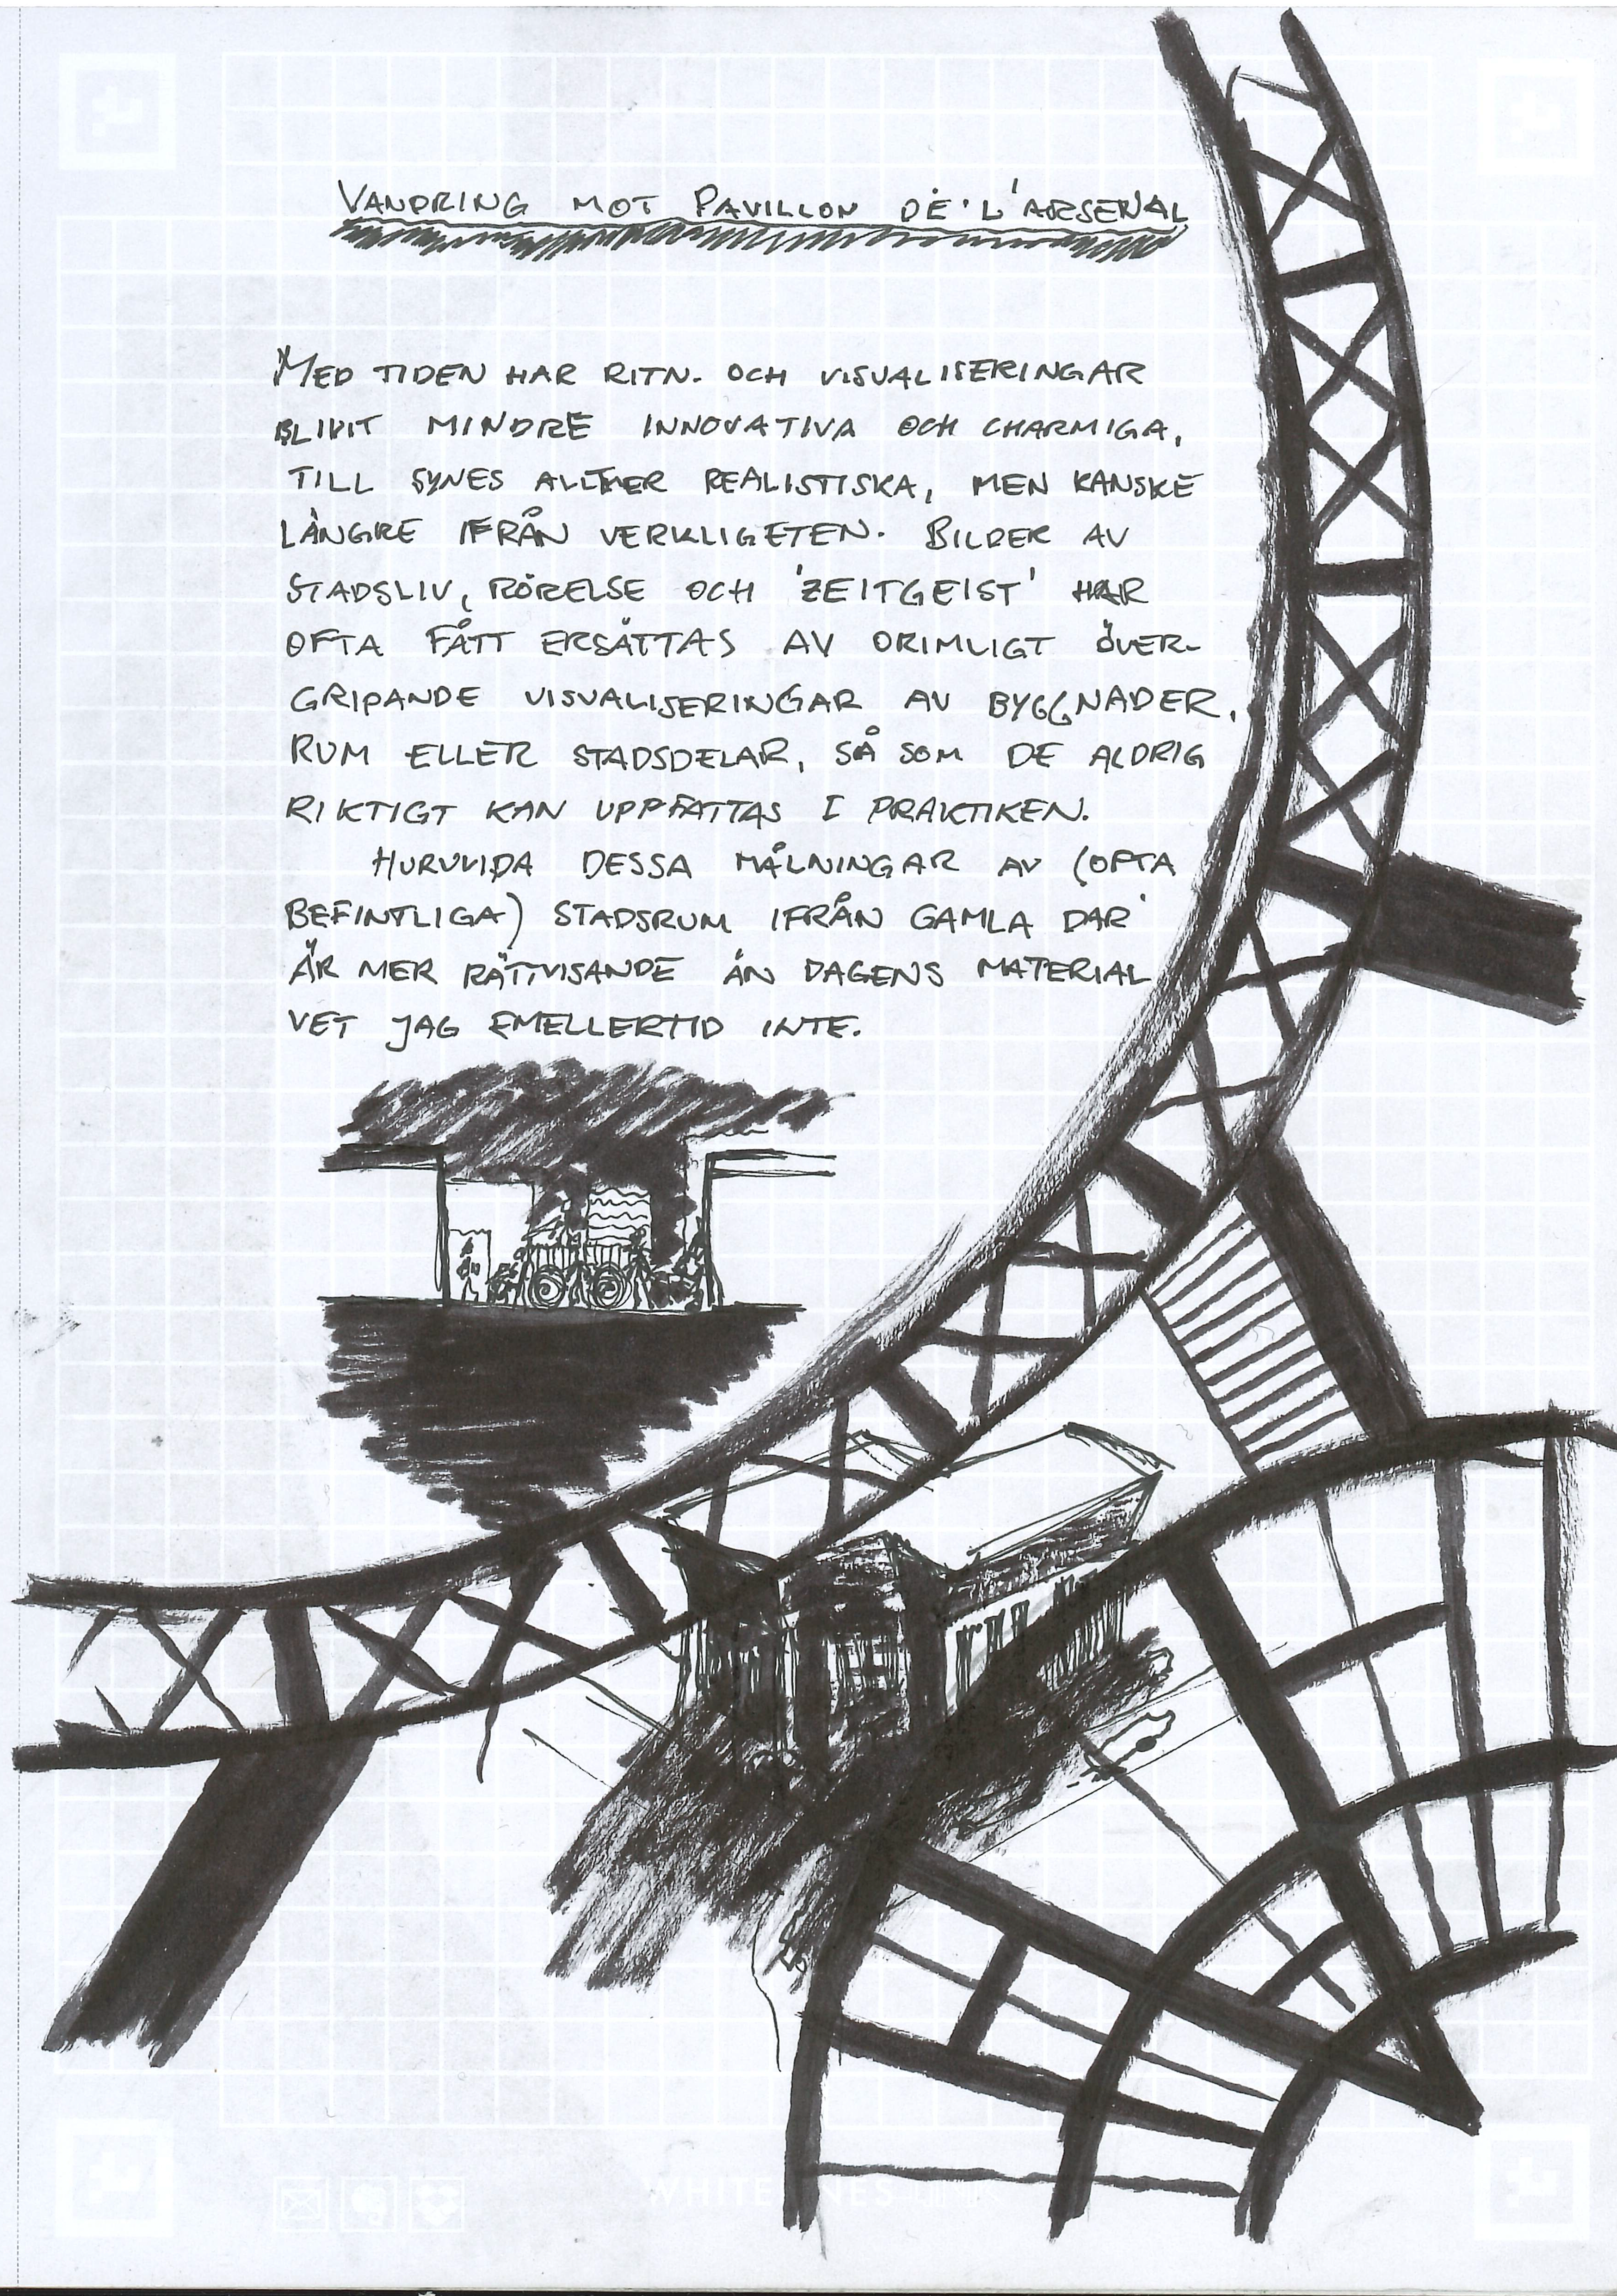 VANDRING MOT PAVILLON DE'L'ARSENAL
MED TIDEN HAR RITN. OCH VISUALISERINGAR
BLIVIT MINDRE INNOVATIVA OCH CHARMIGA,
TILL SYNES ALLTMER REALISTISKA, MEN KANSKE
LÄNGRE IFRÅN VERKLIGETEN. BILDER AV
STADSLIV, RÖRELSE OCH 'ZEITGEIST' HAR
OFTA FÅTT ERSÄTTAS AV ORIMLIGT ÖVER-
GRIPANDE VISUALISERINGAR AV BYGGNADER,
RUM ELLER STADSDELAR, SÅ SOM DE ALDRIG
RIKTIGT KAN UPPFATTAS I PRAKTIKEN.
HURUVIDA DESSA MÅLNINGAR AV (OFTA
BEFINTLIGA) STADSRUM IFRÅN GAMLA DAR
ÄR MER RÄTTVISANDE ÄN DAGENS MATERIAL
VET JAG EMELLERTID INTE.